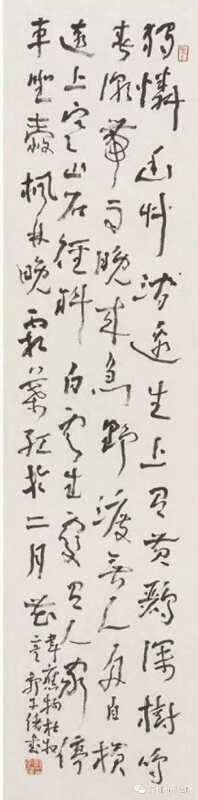 獨憐幽草澗邊生上有黃鸝深樹鳴
春潮帶雨晚來急野渡無人舟自橫
遠上寒山石徑斜白雲生處有人家停
車坐愛楓林晚霜葉紅於二月花
韋應物杜牧
郭子緒書